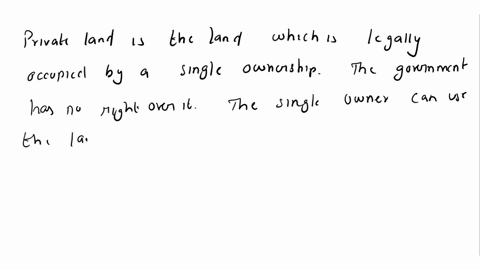 Private land is the land which is legally
occupied by a single ownership. The government
has no right over it. The single owner can use
the la